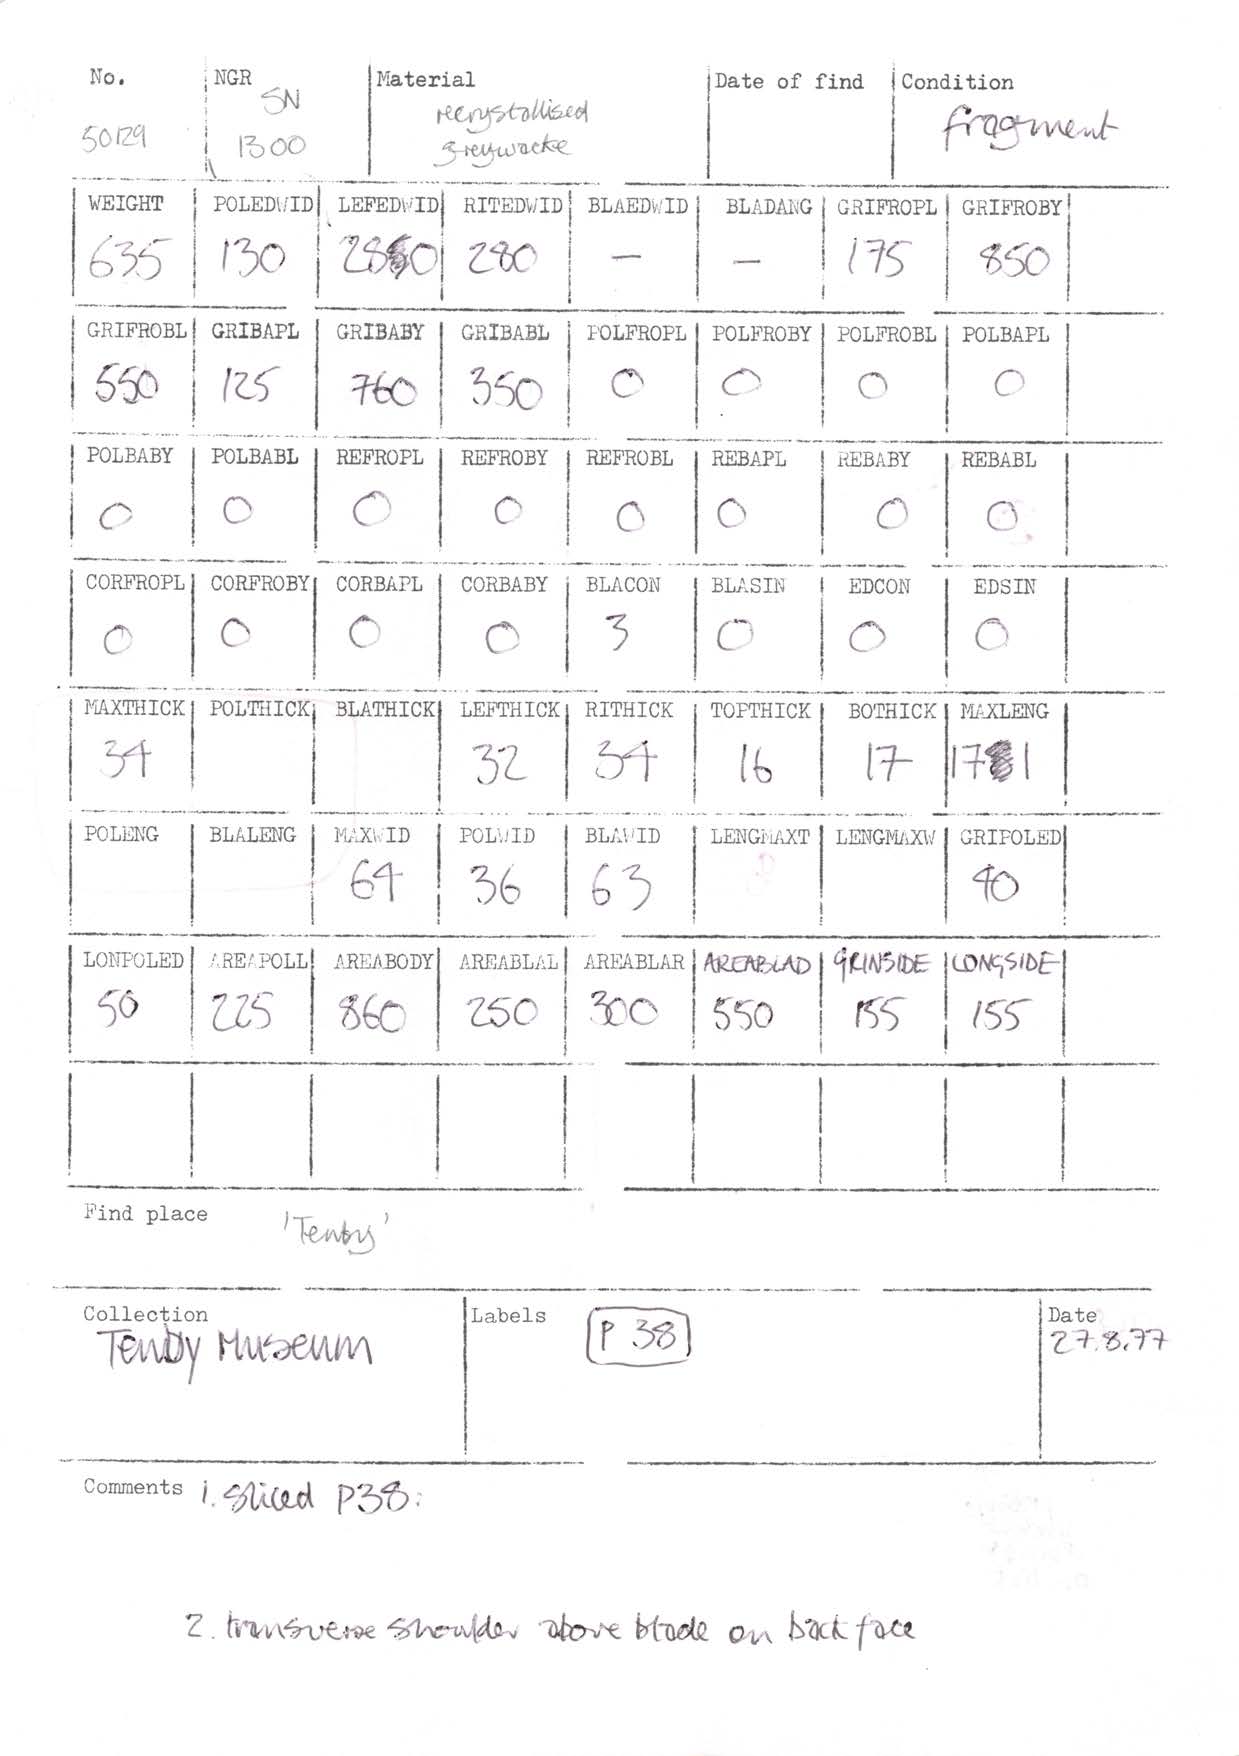 No. NGR Material Date of find Condition
SN recrystallised fragment
50129 1300 greywacke
WEIGHT POLEDWID LEFEDWID RITEDWID BLAEDWID BLADANG GRIFROPL GRIFROBY
635 130 280 280 — — 175 850
GRIFROBL GRIBAPL GRIBABY GRIBABL POLFROPL POLFROBY POLFROBL POLBAPL
550 125 760 350 0 0 0 0
POLBABY POLBABL REFROPL REFROBY REFROBL REBAPL REBABY REBABL
0 0 0 0 0 0 0 0
CORFROPL CORFROBY CORBAPL CORBABY BLACON BLASIN EDCON EDSIN
0 0 0 0 3 0 0 0
MAXTHICK POLTHICK BLATHICK LEFTHICK RITHICK TOPTHICK BOTHICK MAXLENG
34 32 34 16 17 171
POLENG BLALENG MAXWID POLWID BLAWID LENGMAXT LENGMAXW GRIPOLED
64 36 63 40
LONPOLED AREAPOLL AREABODY AREABLAL AREABLAR AREABLAD GRINSIDE LONGSIDE
50 225 860 250 300 550 155 155
Find place 'Tenby'
Collection Labels P 38 Date
Tenby Museum 27.8.77
Comments 1. sliced P38.
2. transverse shoulder above blade on back face